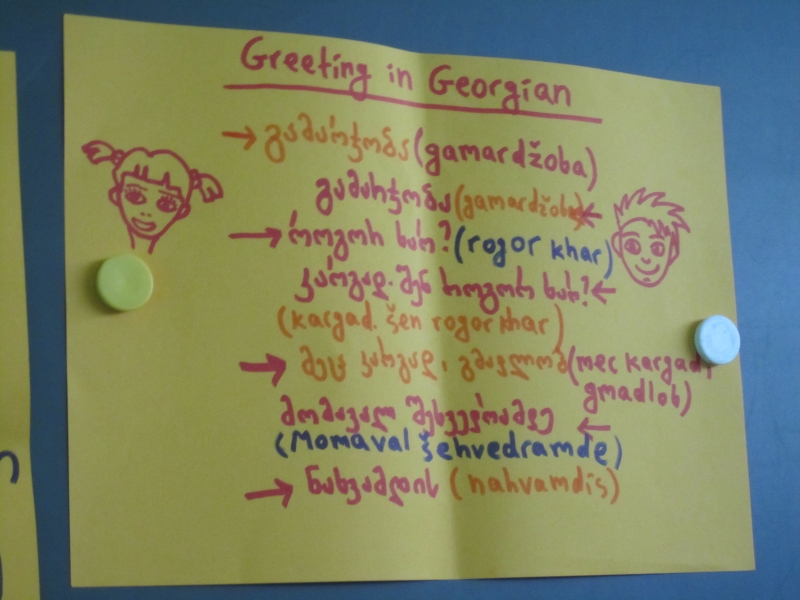 Greeting in Georgian
→ გამარჯობა (gamardžoba)
გამარჯობა (gamardžoba) ←
→ როგორ ხარ? (rogor khar)
კარგად. შენ როგორ ხარ? ←
(kargad. šen rogor khar)
→ მეც კარგად, გმადლობ (mec kargad,
gmadlob)
მომავალ შეხვედრამდე ←
(Momaval šehvedramde)
→ ნახვამდის (nahvamdis)